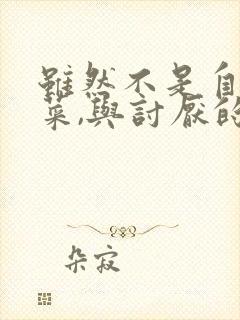 雖然不是自
菜,與討厭的
朵寂